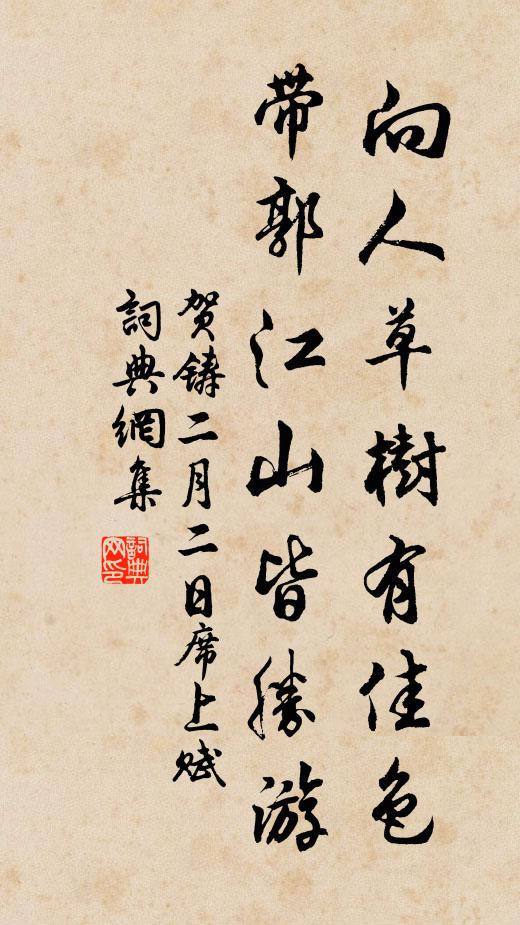 向人草樹有佳色
帶郭江山皆勝游
贺鑄二月二日席上赋
詞典網集
詞典网印